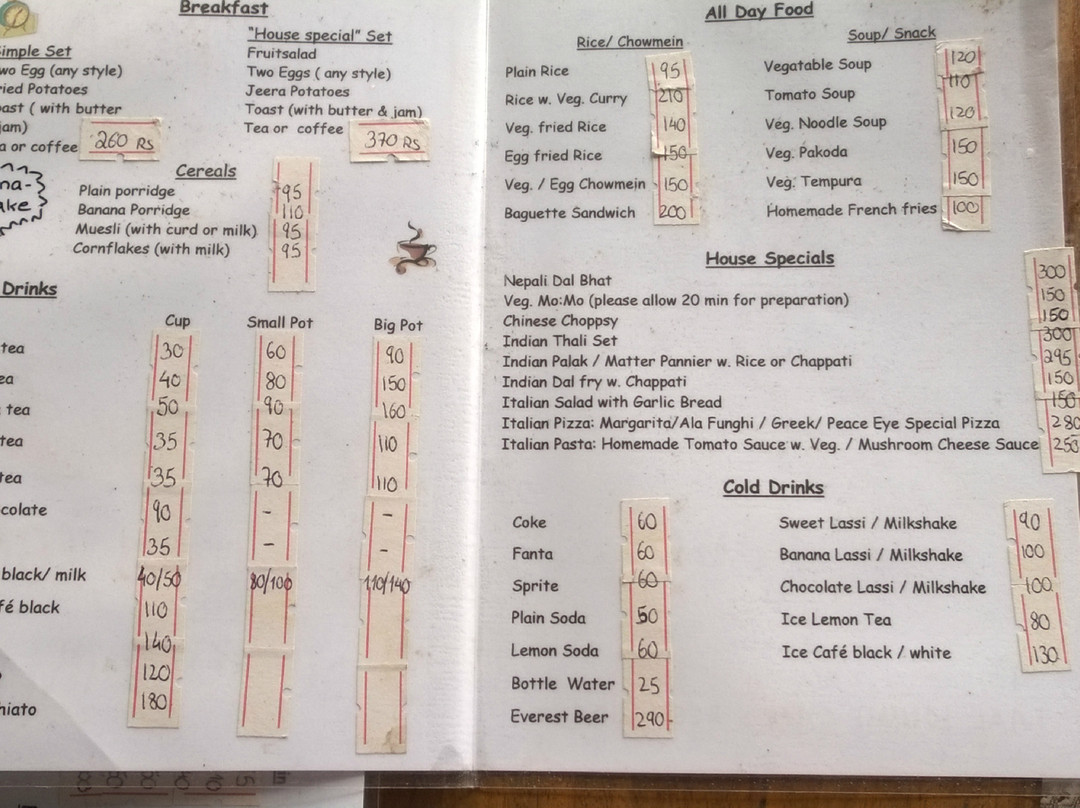 Breakfast
imple Set
wo Egg (any style)
ried Potatoes
oast ( with butter
jam)
a or coffee 260 RS
"House special" Set
Fruitsalad
Two Eggs ( any style)
Jeera Potatoes
Toast (with butter & jam)
Tea or coffee 370 RS
na-
ake
Cereals
Plain porridge 95
Banana Porridge 110
Muesli (with curd or milk) 95
Cornflakes (with milk) 95
Drinks
Cup Small Pot Big Pot
tea 30 60 90
ea 40 80 150
tea 50 90 160
tea 35 70 110
tea 35 70 110
colate 90 - -
35 - -
black/ milk 40/50 80/100 110/140
fé black 110
140
120
hiato 180
All Day Food
Rice/ Chowmein
Plain Rice 95
Rice w. Veg. Curry 210
Veg. fried Rice 140
Egg fried Rice 150
Veg. / Egg Chowmein 150
Baguette Sandwich 200
Soup/ Snack
Vegatable Soup 120
Tomato Soup 110
Veg. Noodle Soup 120
Veg. Pakoda 150
Veg. Tempura 150
Homemade French fries 100
House Specials
Nepali Dal Bhat 300
Veg. Mo:Mo (please allow 20 min for preparation) 150
Chinese Choppsy 150
Indian Thali Set 300
Indian Palak / Matter Pannier w. Rice or Chappati 295
Indian Dal fry w. Chappati 150
Italian Salad with Garlic Bread 150
Italian Pizza: Margarita/Ala Funghi / Greek/ Peace Eye Special Pizza 280
Italian Pasta: Homemade Tomato Sauce w. Veg. / Mushroom Cheese Sauce 250
Cold Drinks
Coke 60
Fanta 60
Sprite 60
Plain Soda 50
Lemon Soda 60
Bottle Water 25
Everest Beer 290
Sweet Lassi / Milkshake 90
Banana Lassi / Milkshake 100
Chocolate Lassi / Milkshake 100
Ice Lemon Tea 80
Ice Café black / white 130